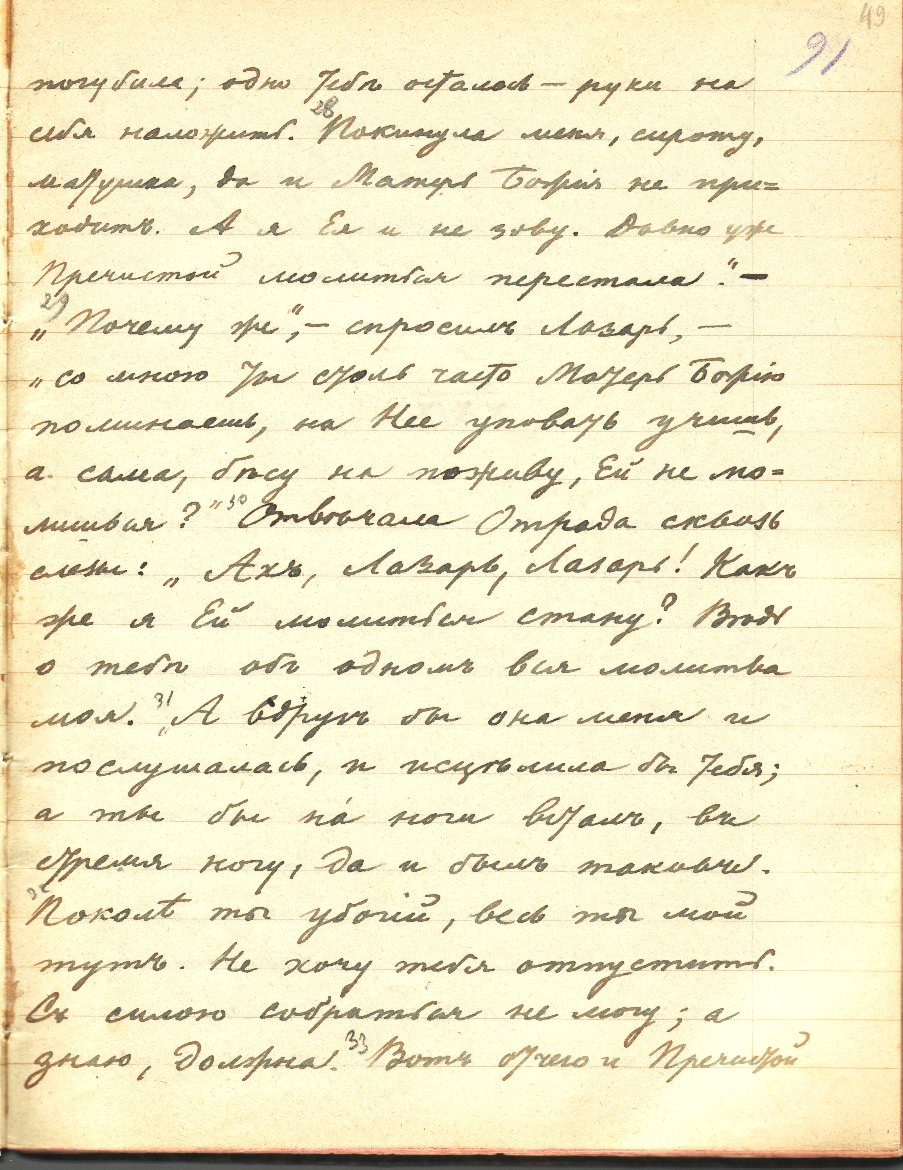 49
91
погубила; одно тебѣ осталось — руки на
себя наложить. 28 Покинула меня, сироту,
матушка, да и Матерь Божія не при=
ходитъ. А я Ея и не зову. Давно уже
Пречистой молиться перестала." —
29 „Почему же", — спросилъ Лазарь, —
„со мною ты столь часто Матерь Божію
поминаешь, на Нее уповать учишь,
а сама, бѣсу на поживу, Ей не мо=
лишься?" 30 Отвѣчала Отрада сквозь
слезы: „Ахъ, Лазарь, Лазарь! Какъ
же я Ей молиться стану? Вѣдь
о тебѣ объ одномъ вся молитва
моя. 31 „А вдругъ бы она меня и
послушалась, и исцѣлила бы тебя;
а ты бы на́ ноги всталъ, въ
стремя ногу, да и былъ таковъ.
32 Поколѣ ты убогій, весь ты мой
тутъ. Не хочу тебя отпустить.
Съ силою собраться не могу; а
знаю, должна. 33 Вотъ отчего и Пречистой